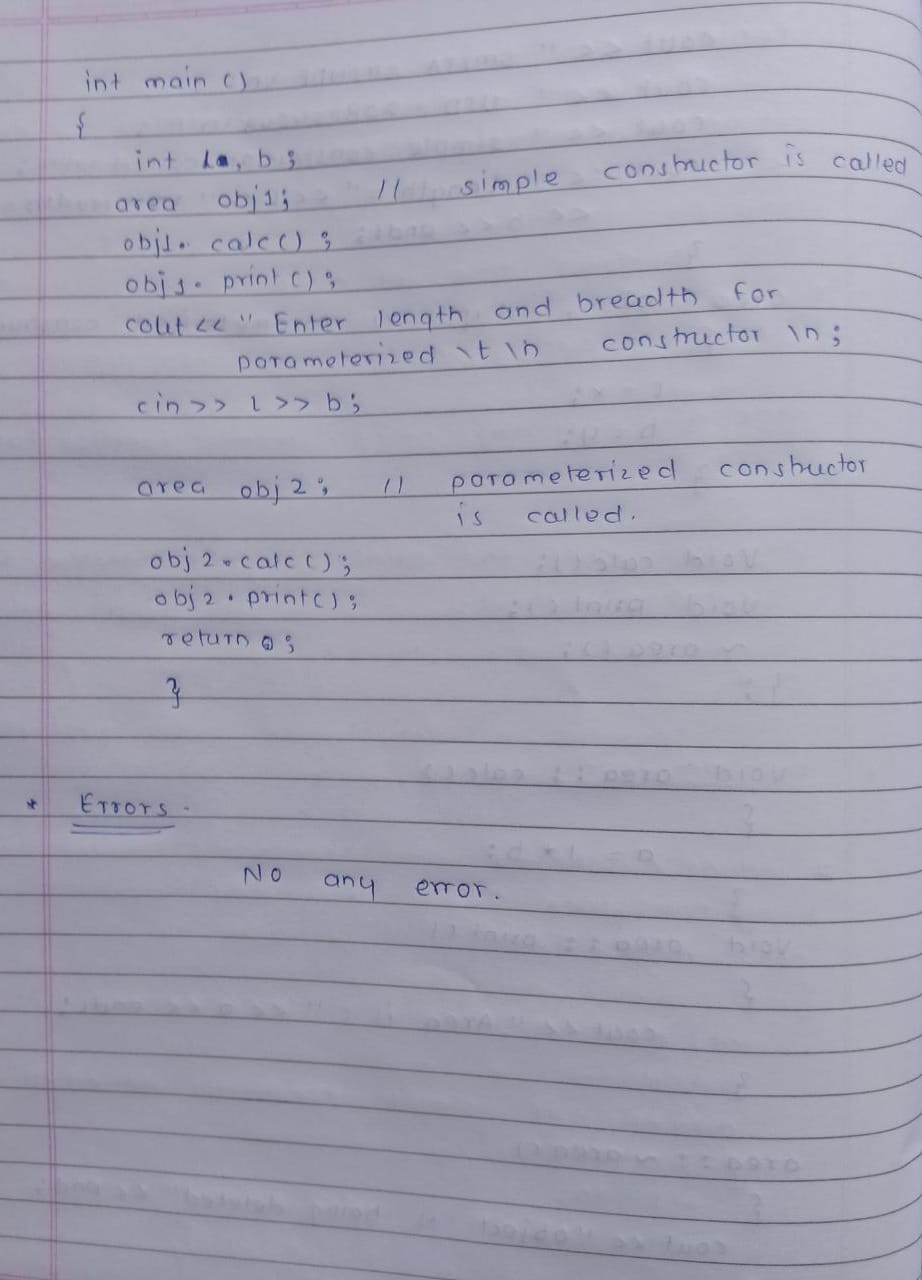 int main ()
{
int l, b ;
area obj1; // simple constructor is called
obj1. calc() ;
obj1. print () ;
cout << " Enter length and breadth for
parameterized \t \n constructor \n ;
cin >> l >> b ;
area obj 2 ; // parameterized constructor
is called.
obj 2 . calc () ;
obj 2 . print () ;
return 0 ;
}
* Errors -
No any error.